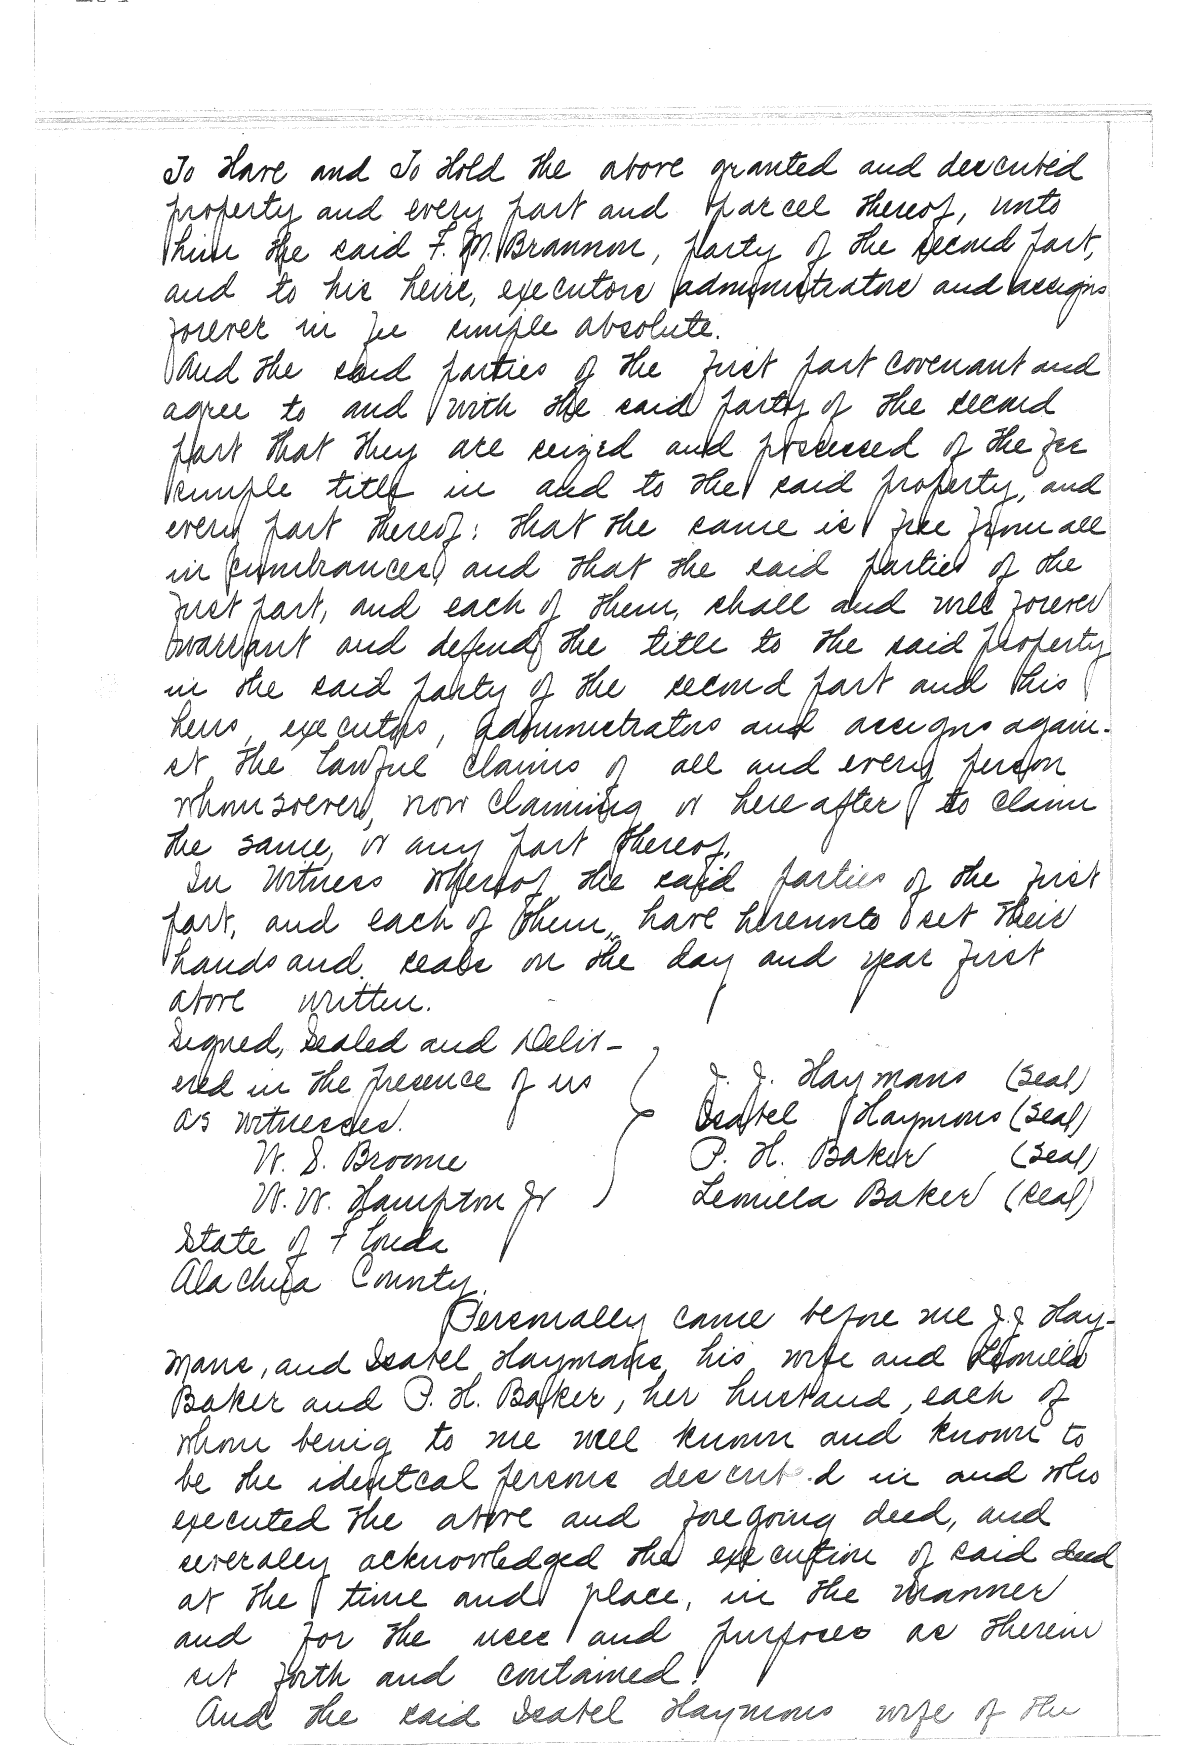 To Have and To Hold the above granted and described
property and every part and parcel thereof, unto
him the said F. M. Brannon, party of the second part,
and to his heirs, executors administrators and assigns
forever in fee simple absolute.
And the said parties of the first part covenant and
agree to and with the said party of the second
part that they are seized and possessed of the fee
simple title in and to the said property, and
every part thereof: that the same is free from all
in cumbrances, and that the said parties of the
first part, and each of them, shall and will forever
warrant and defend the title to the said property
in the said party of the second part and his
heirs, executors, administrators and assigns again-
st the lawful claims of all and every person
whomsoever, now claiming or hereafter to claim
the same, or any part thereof.
In Witness Whereof the said parties of the first
part, and each of them, have hereunto set their
hands and seals on the day and year first
above written.
Signed, Sealed and Deliv-
ered in the presence of us
as witnesses.
W. S. Broome
W. W. Hampton Jr
J. J. Haymans (Seal)
Isabel Haymons (Seal)
P. H. Baker (Seal)
Leonilla Baker (Seal)
State of Florida
Alachua County.
Personally came before me J. J. Hay-
mans, and Isabel Haymans, his wife and Leonilla
Baker and P. H. Baker, her husband, each of
whom being to me well known and known to
be the identcal persons described in and who
executed the above and foregoing deed, and
severally acknowledged the execution of said deed
at the time and place, in the manner
and for the uses and purposes as therein
set forth and contained.
And the said Isabel Haymons wife of the